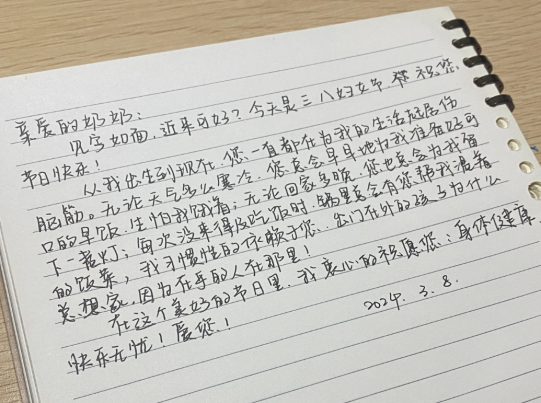 亲爱的奶奶：
见字如面，近来可好？今天是三八妇女节，恭祝您
节日快乐！
从我出生到现在，您一直都在为我的生活起居伤
脑筋。无论天气多么寒冷，您总会早早地为我准备好可
口的早饭，生怕我饿着；无论回家多晚，您也总会为我留
下一盏灯；每次没来得及吃饭时，锅里总会有您帮我温着
的饭菜，我习惯性的依赖于您…出门在外的孩子为什么
总想家，因为在乎的人在那里！
在这个美好的节日里，我衷心的祝愿您：身体健康，
快乐无忧！爱您！
2024. 3. 8.